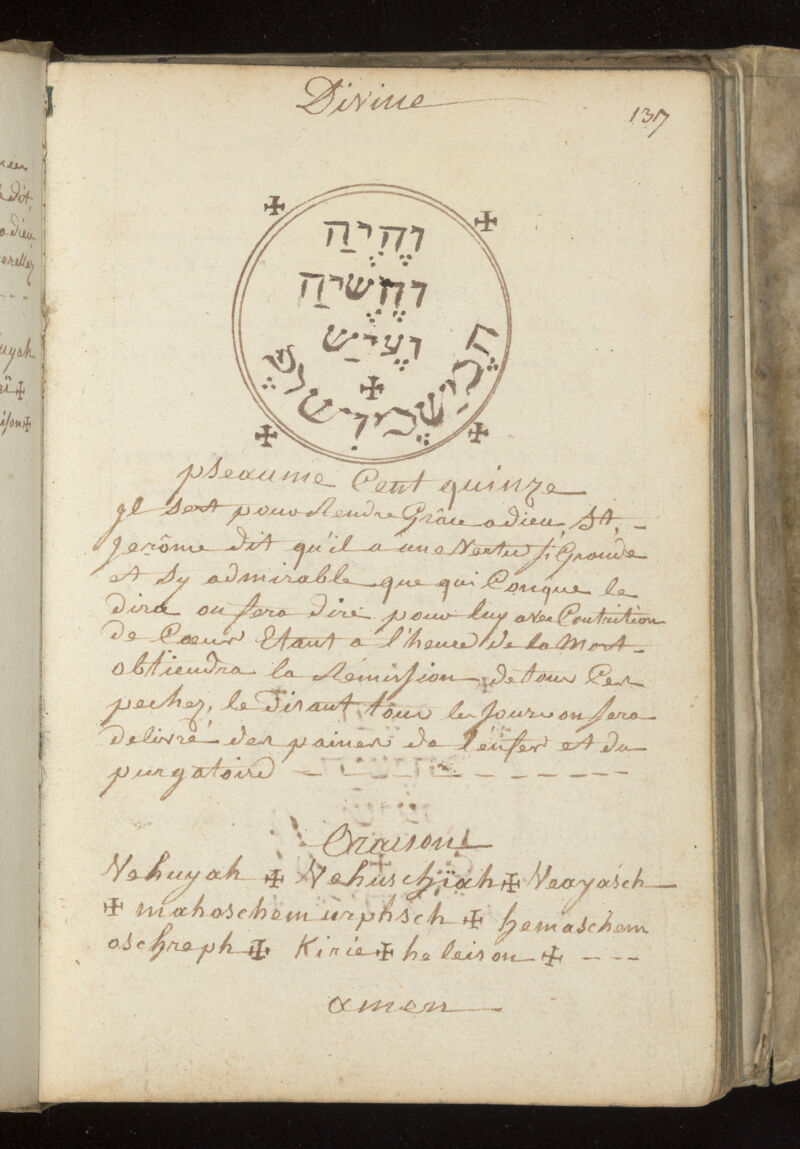 Divine
137
וֶהֶיֶה
וֶהֶשִׁיַה
וֶעֶיַש
pseaume Cent quinze
jl sert pour Rendre Grâce a dieu, St,
jerôme dit qu'il a une Vertu si Grande
et sy admirable que qui Conque le
dira ou fera dire pour luy avec Contrition
de Cœur Etant a l'heure de la Mort
obtiendra la Rémission de tous Ces
pechez, le disant tous les jours on sera
delivré des paines de l'enfer et du
purgatoire
Oraison
Vehuyah ✠ Vehuschiah ✠ Veayasch
✠ mahoschem urphsch ✠ hemaschem
oschreph ✠ Kirie ✠ heleison ✠
amen